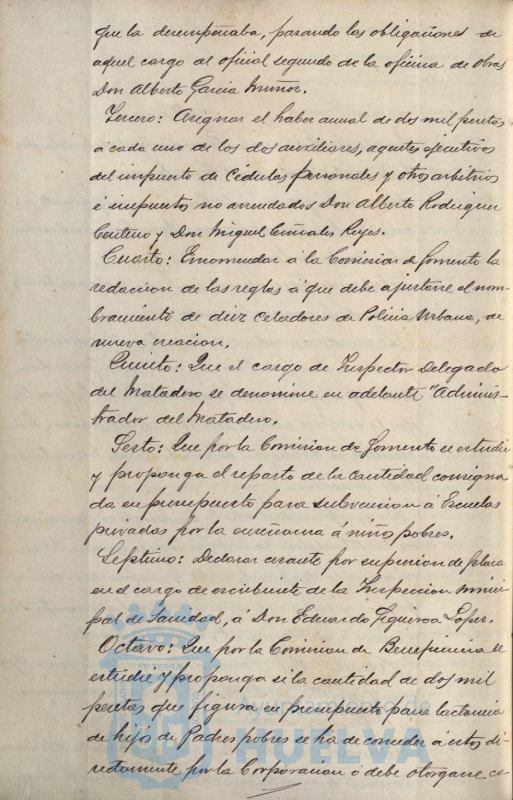 que la desempeñaba, pasando las obligaciones de
aquel cargo al oficial segundo de la oficina de obras
Don Alberto Garcia Muñoz.
Tercero: Asignar el haber anual de dos mil pesetas
a cada uno de los dos auxiliares, agentes ejecutivos
del impuesto de Cédulas personales y otros arbitrios
é impuestos no arrendados Don Alberto Rodriguez
y Don Miguel Reyes.
Cuarto: Encomendar á la Comision de fomento la
redaccion de las reglas á que debe ajustarse el nom-
bramiento de diez Celadores de Policia Urbana, de
nueva creacion.
Quinto: Que el cargo de Inspector Delegado
del Matadero se denomine en adelante "Adminis-
trador del Matadero.
Sesto: Que por la Comision de fomento se estudie
y proponga el reparto de la cantidad consigna
da en presupuesto para subvencion á Escuelas
privadas por la enseñanza á niños pobres.
Septimo: Declarar cesante por supresion de plaza
en el cargo de escribiente de la Inspeccion munici
pal de Sanidad, á Don Eduardo Figueroa Lopez.
Octavo: Que por la Comision de Beneficencia se
estudie y proponga si la cantidad de dos mil
pesetas que figura en presupuesto para lactancia
de hijos de Padres pobres se ha de conceder á estos di-
rectamente por la Corporacion ó debe otorgarse co
HUELVA